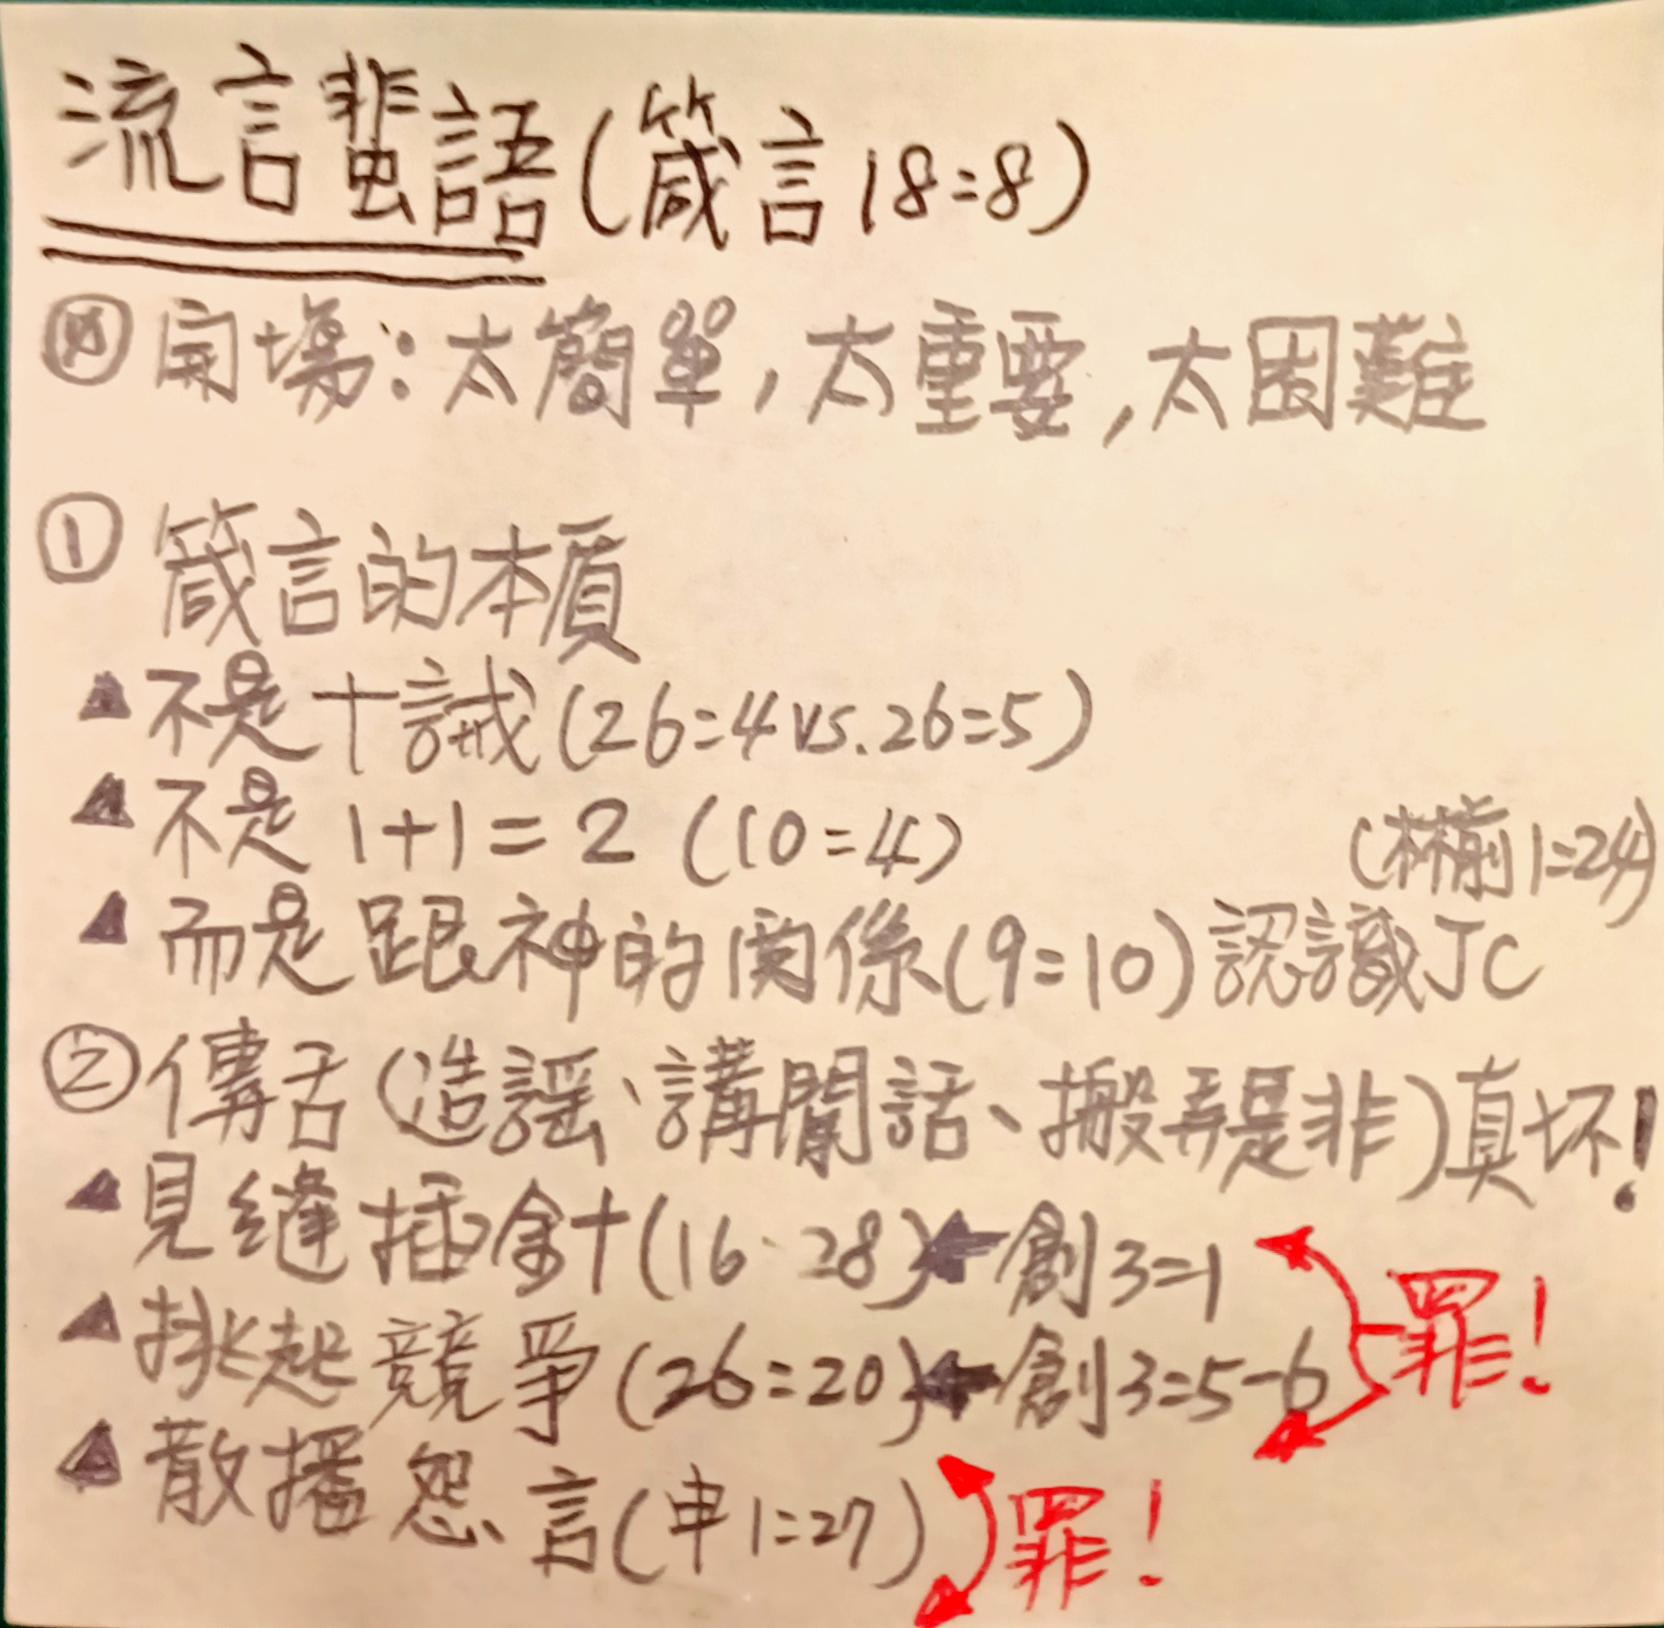 流言蜚語(箴言18:8)
開場:太簡單,太重要,太困難
① 箴言的本質
▲不是十誡(26:4 vs. 26:5)
▲不是 1+1=2 (10:4)
(林前1:24)
▲而是跟神的関係(9:10)認識JC
②傳舌(造謠、講閒話、搬弄是非)真坏!
▲見縫插針(16:28)←創3:1
▲挑起競爭(26:20)←創3:5-6
罪!
▲散播怨言(申1:27)
罪!